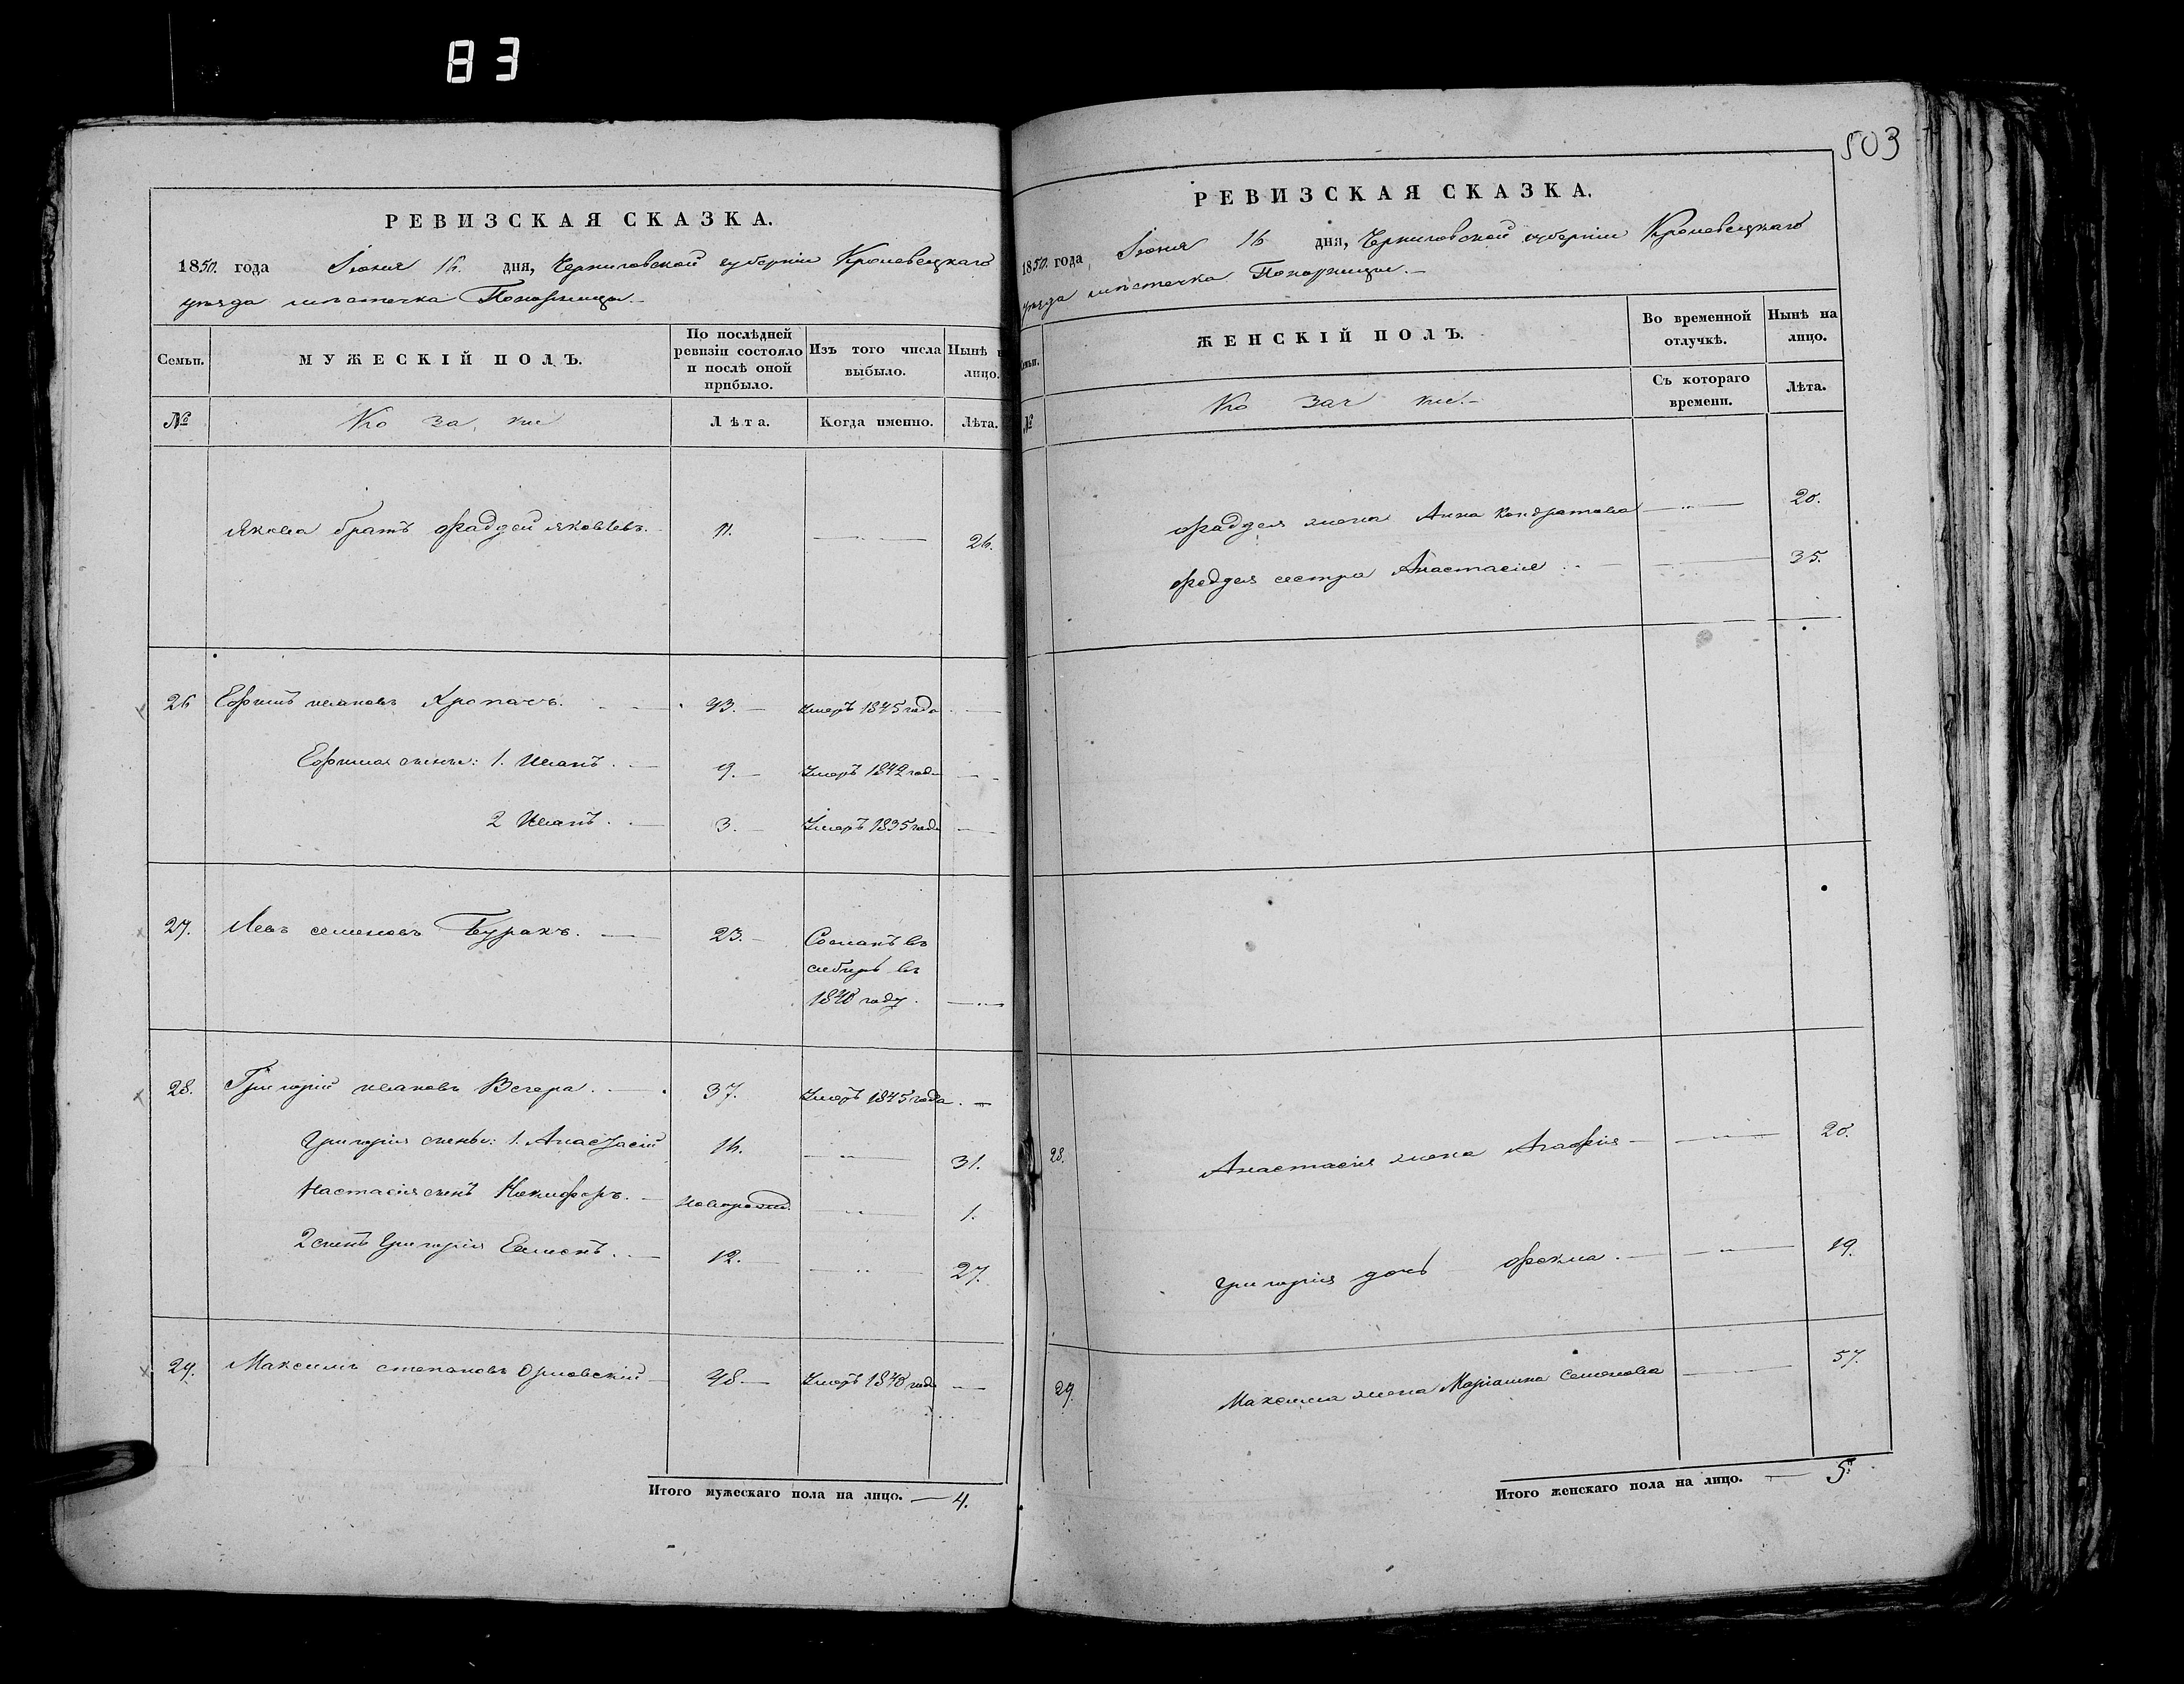 83
503
РЕВИЗСКАЯ СКАЗКА.
1850. года Іюня 16. дня, Черниговской губерніи Кролевецкаго
уѣзда мѣстечка Понорницы.
Семьи. МУЖЕСКІЙ ПОЛЪ. По послѣдней ревизіи состояло и послѣ оной прибыло. Изъ того числа выбыло. Нынѣ лицо.
№ Ко за ки Лѣта. Когда именно. Лѣта.
Якова братъ Фаддей Яковлевъ. 11. 26.
26 Ефимъ Ивановъ Кропачъ. 43. Умеръ 1845 года
Ефима сыны: 1. Иванъ. 9. Умеръ 1842 года
2 Иванъ. 3. Умеръ 1835 года
27. Левъ Семеновъ Буракъ. 23. Сосланъ въ
сибирь въ
1840 году.
28. Григорій Ивановъ Вечера. 37. Умеръ 1845 года.
Григорія сыны: 1. Анастасій 16. 31.
Настасія сынъ Никифоръ. Новорожд. 1.
2 сынъ Григорія Семенъ. 12. 27.
29. Максимъ Степановъ Орловскій 48. Умеръ 1848 года
Итого мужескаго пола на лицо. 4.
РЕВИЗСКАЯ СКАЗКА.
1850. года Іюня 16 дня, Черниговской губерніи Кролевецкаго
уѣзда мѣстечка Понорницы.
Семьи. ЖЕНСКІЙ ПОЛЪ. Во временной отлучкѣ. Нынѣ на лицо.
№ Ко зач ки. Съ котораго времени. Лѣта.
Фаддея жена Анна Кондратова 20.
Фаддея сестра Анастасія 35.
28. Анастасія жена Агафія 20.
Григорія дочь Фекла. 19.
29. Максима жена Маріанна Семенова 57.
Итого женскаго пола на лицо. 5.